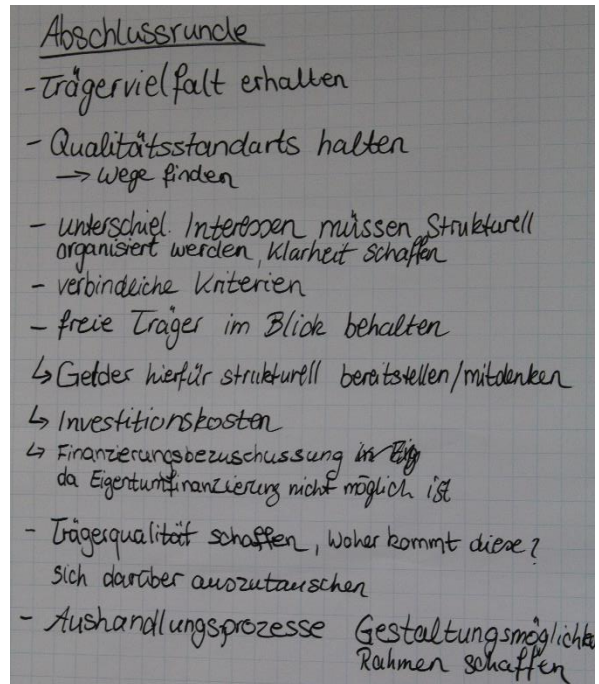 Abschlussrunde
- Trägervielfalt erhalten
- Qualitätsstandarts halten
→ Wege finden
- unterschiel. Interessen müssen strukturell
organisiert werden, Klarheit schaffen
- verbindliche Kriterien
- freie Träger im Blick behalten
↳ Gelder hierfür strukturell bereitstellen/mitdenken
↳ Investitionskosten
↳ Finanzierungsbezuschussung
da Eigentumfinanzierung nicht möglich ist
- Trägerqualität schaffen, Woher kommt diese?
sich darüber auszutauschen
- Aushandlungsprozesse Gestaltungsmöglichk
Rahmen schaffen